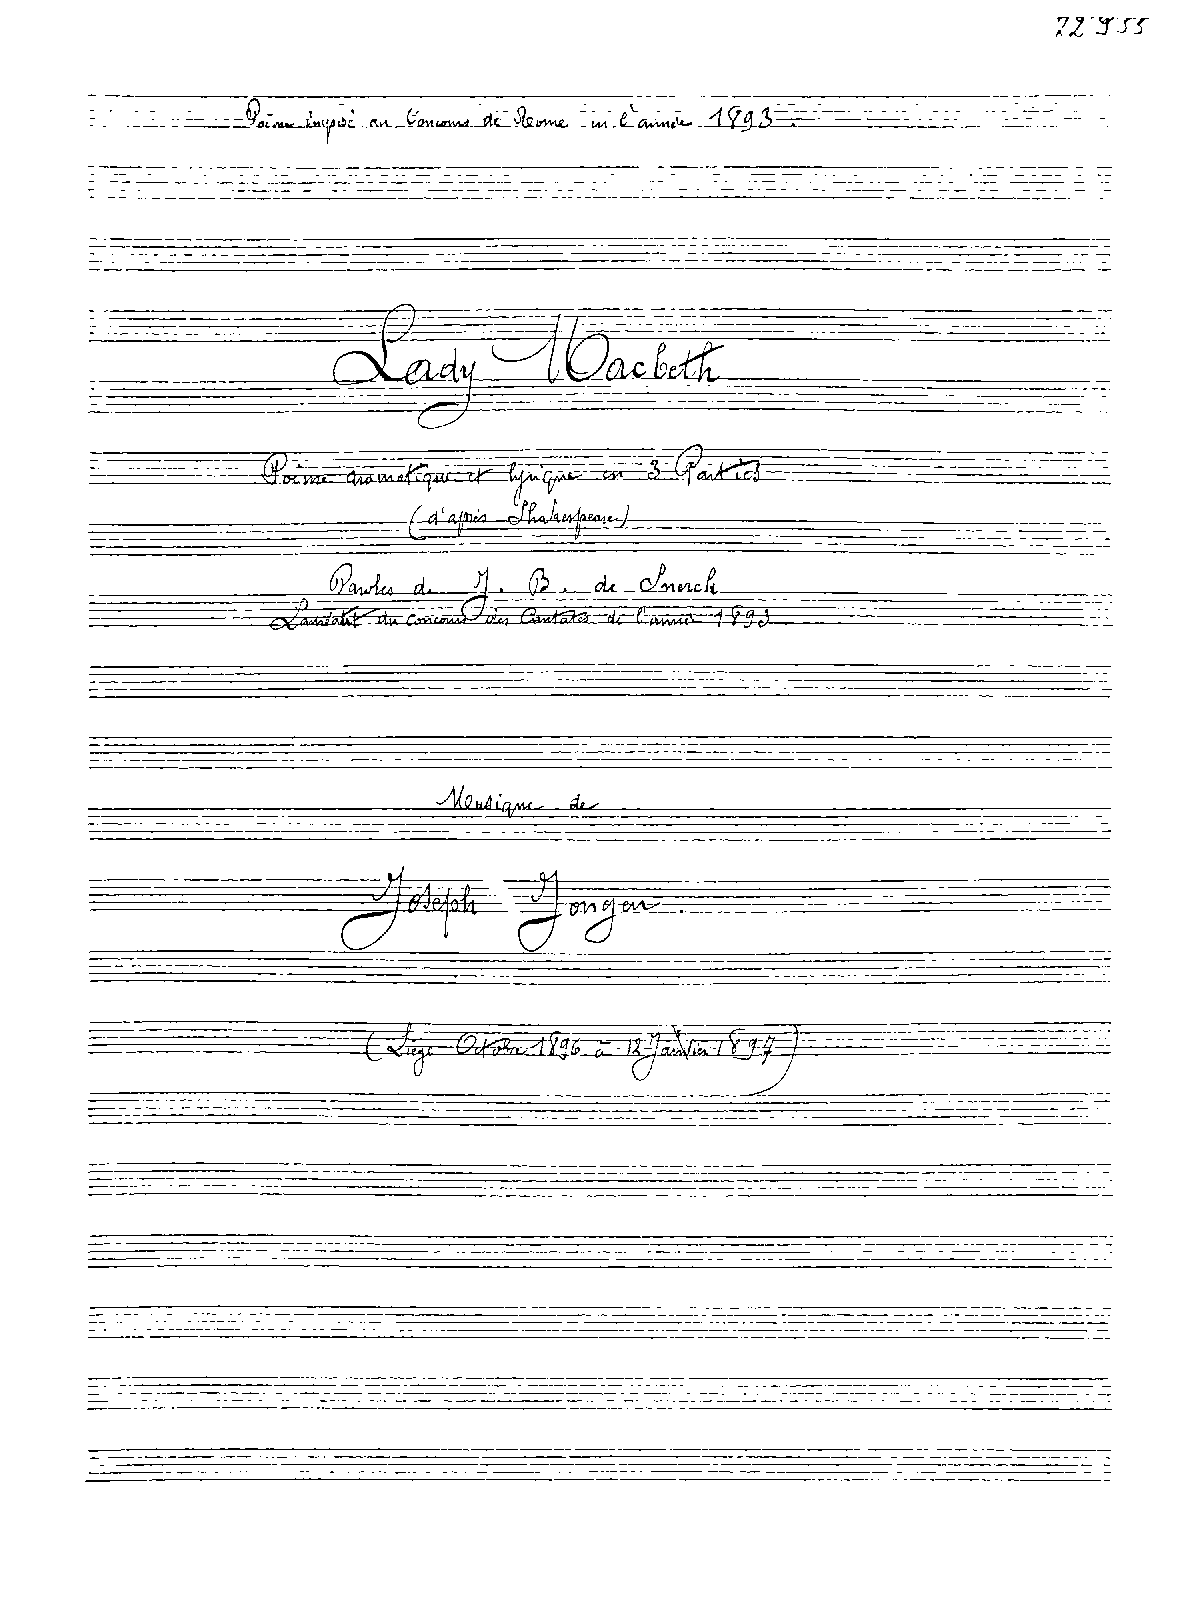 72955
Poème imposé au Concours de Rome en l'année 1893.
Lady Macbeth
Poème dramatique et lyrique en 3 Parties
(d'après Shakespeare)
Paroles de J. B. de Snerck
Lauréat du concours des Cantates de l'année 1893
Musique de
Joseph Jongen.
(Liège Octobre 1896 à 12 Janvier 1897)